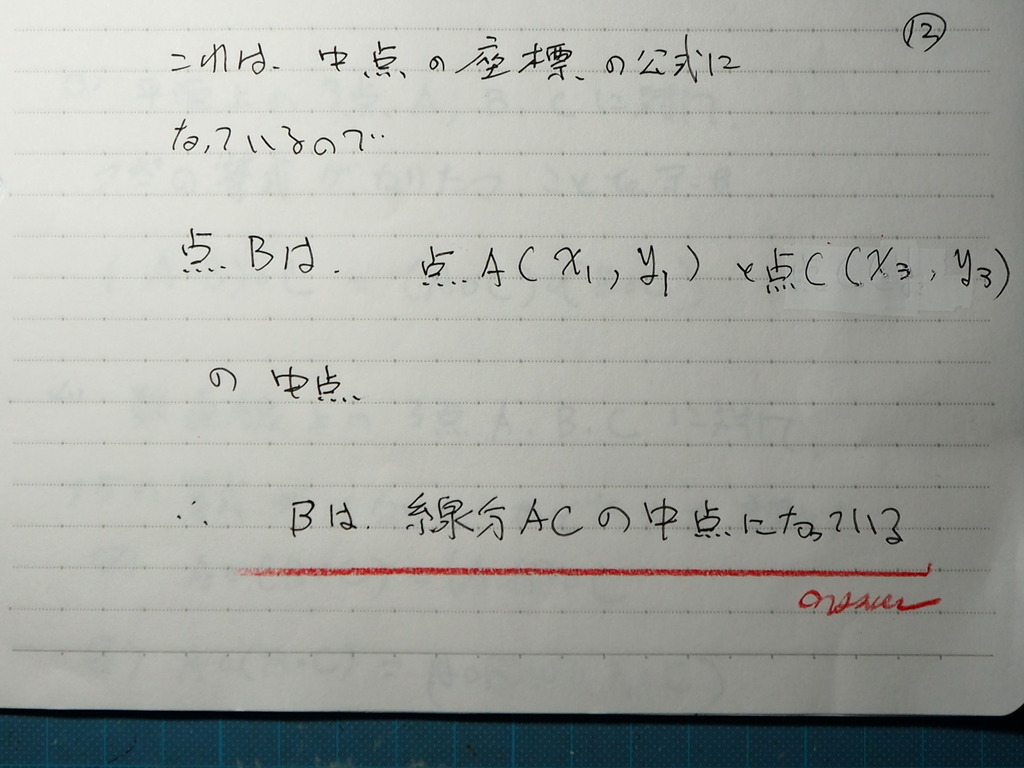 ⑬
これは、中点の座標の公式に
なっているので‥
点Bは、 点A(x₁, y₁) と点C(x₃, y₃)
の 中点、
∴ Bは、線分ACの中点になっている
answer